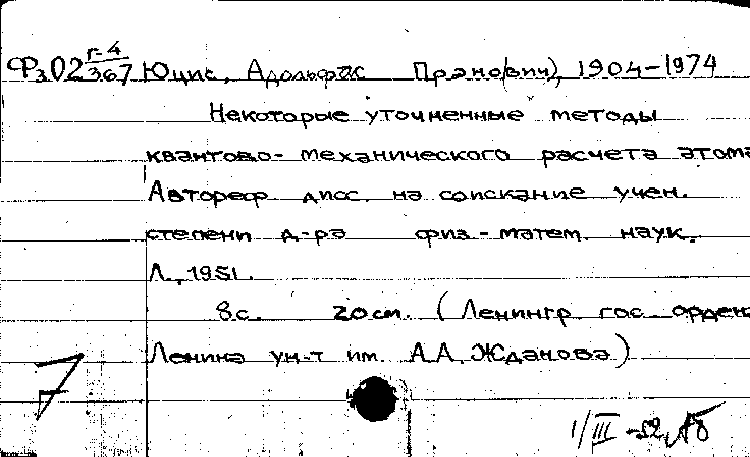 Фз02 г-4/367 Юцис, Адольфас Прано(вич), 1904-1974
Некоторые уточненные методы
квантово-механического расчета атома
Автореф дисс. на соискание учен.
степени д-ра физ-матем. наук.
Л., 1951.
8с. 20см. (Ленингр гос ордена
Ленина ун-т им. А.А. Жданова)
1/III -52